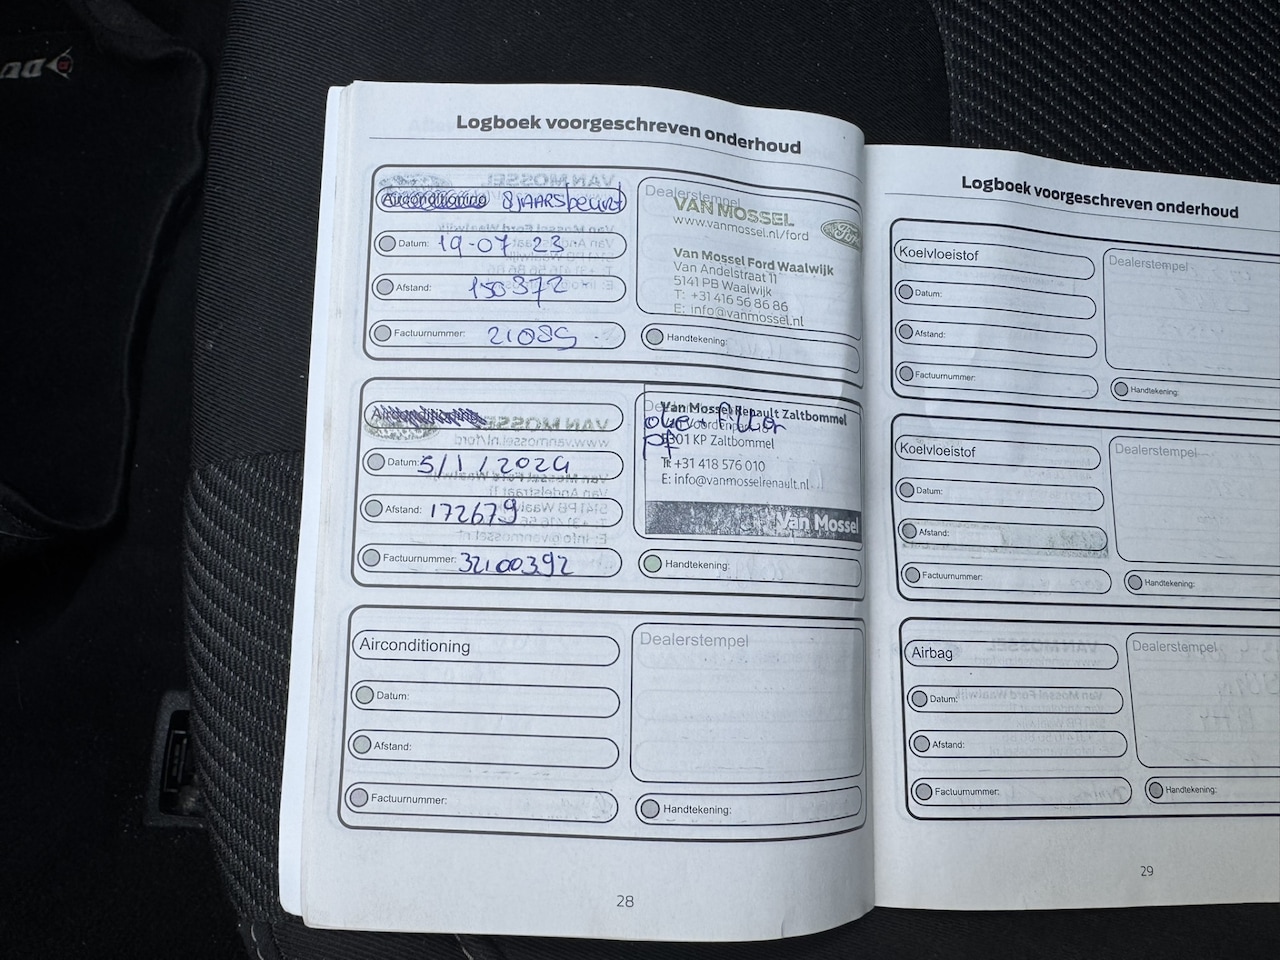 Logboek voorgeschreven onderhoud
Airconditioning 8 JAARSbeurt
Datum: 19-07-23
Afstand: 150372
Factuurnummer: 21089
Dealerstempel
VAN MOSSEL
www.vanmossel.nl/ford
Ford
Van Mossel Ford Waalwijk
Van Andelstraat 11
5141 PB Waalwijk
T: +31 416 56 86 86
E: info@vanmossel.nl
Handtekening:
Airconditioning
Datum: 5/1/2024
Afstand: 172679
Factuurnummer: 32100392
Van Mossel Renault Zaltbommel
olie + filter
5301 KP Zaltbommel
T: +31 418 576 010
E: info@vanmosselrenault.nl
Van Mossel
Handtekening:
Airconditioning
Datum:
Afstand:
Factuurnummer:
Dealerstempel
Handtekening:
28
Logboek voorgeschreven onderhoud
Koelvloeistof
Datum:
Afstand:
Factuurnummer:
Dealerstempel
Handtekening:
Koelvloeistof
Datum:
Afstand:
Factuurnummer:
Dealerstempel
Handtekening:
Airbag
Datum:
Afstand:
Factuurnummer:
Dealerstempel
Handtekening:
29